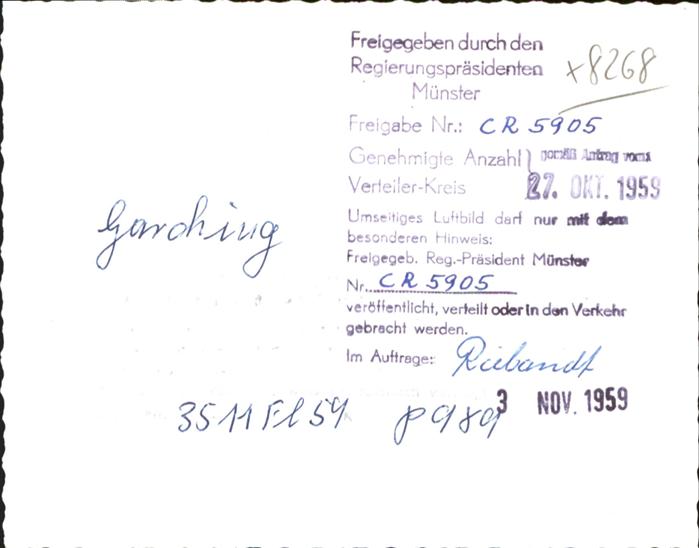 Freigegeben durch den
Regierungspräsidenten
Münster
x8268
Freigabe Nr.: CR 5905
Genehmigte Anzahl } gemäß Antrag vom:
Verteiler-Kreis 27. OKT. 1959
Umseitiges Luftbild darf nur mit dem
besonderen Hinweis:
Freigegeb. Reg.-Präsident Münster
Nr. CR 5905
veröffentlicht, verteilt oder in den Verkehr
gebracht werden.
Im Auftrage:
3 NOV. 1959
Garching
3511 Fl 59 p989